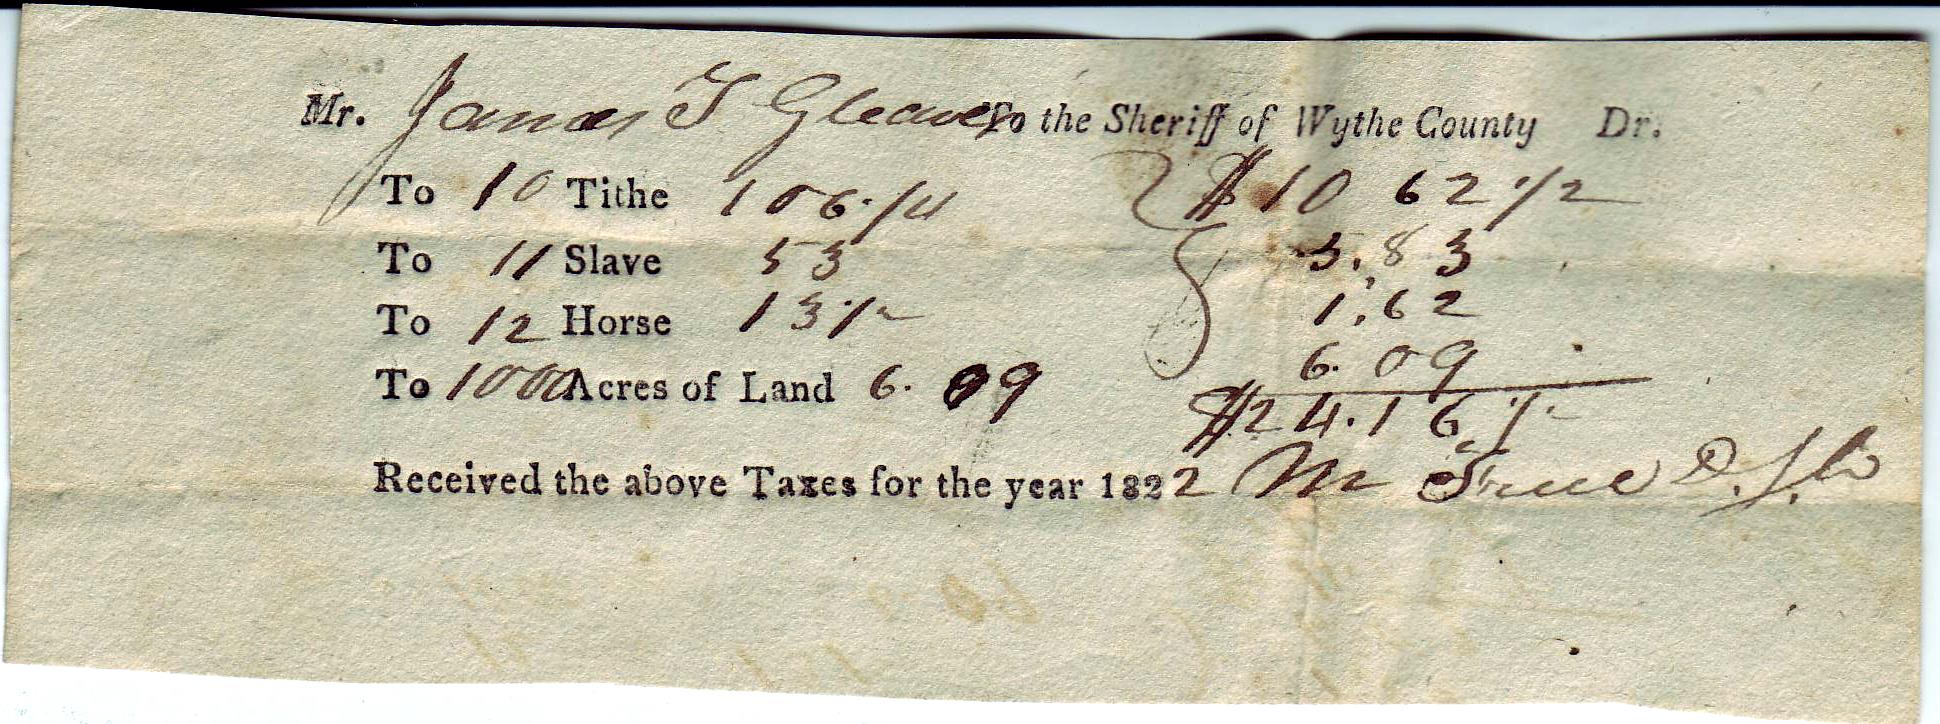 Mr. James T Gleaves To the Sheriff of Wythe County Dr.
To 10 Tithe 106 1/4 $10 62 1/2
To 11 Slave 53 5.83
To 12 Horse 13 1/2 1.62
To 1000 Acres of Land 6.09 6.09
$24.16 1/2
Received the above Taxes for the year 1822 M D. S.